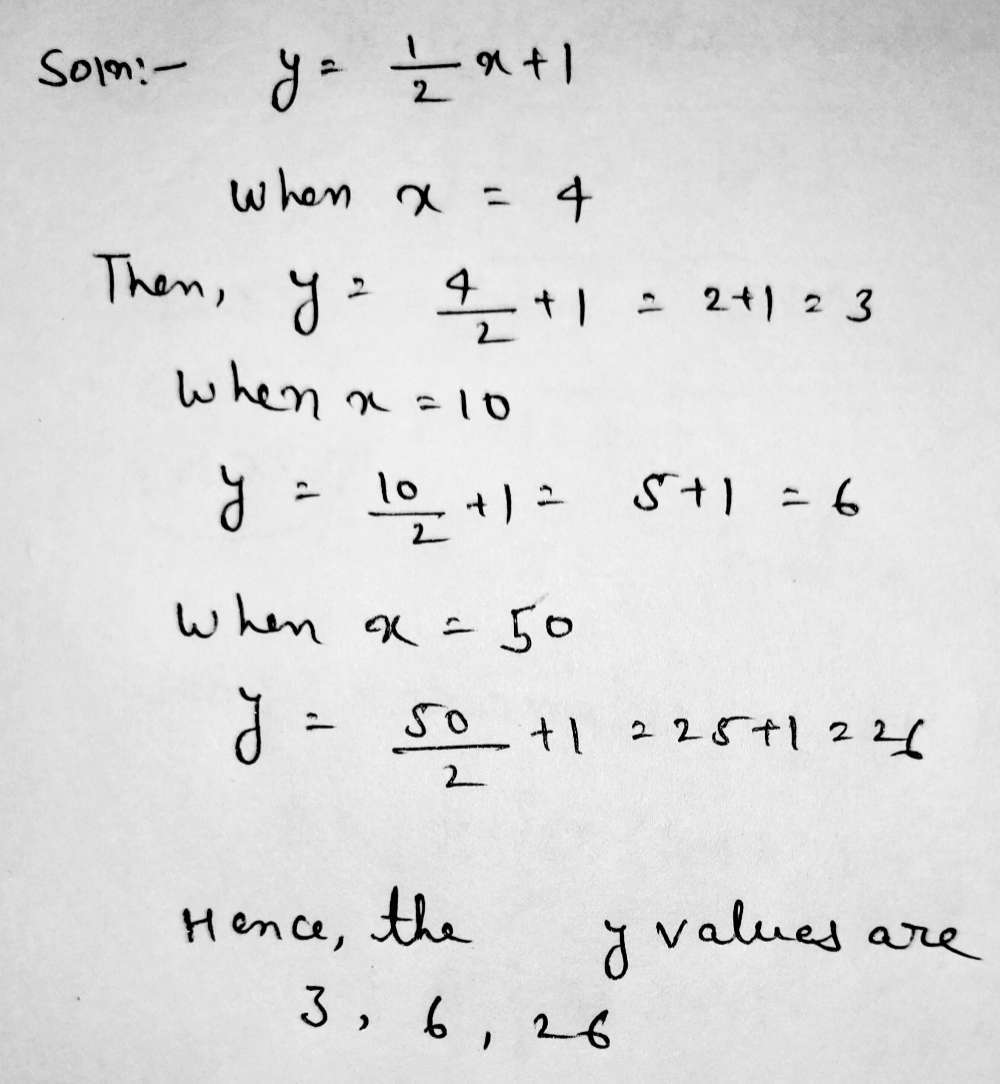 Soln:- y = 1/2 x + 1
when x = 4
Then, y = 4/2 + 1 = 2+1 = 3
when x = 10
y = 10/2 + 1 = 5+1 = 6
when x = 50
y = 50/2 + 1 = 25+1 = 26
Hence, the y values are
3, 6, 26